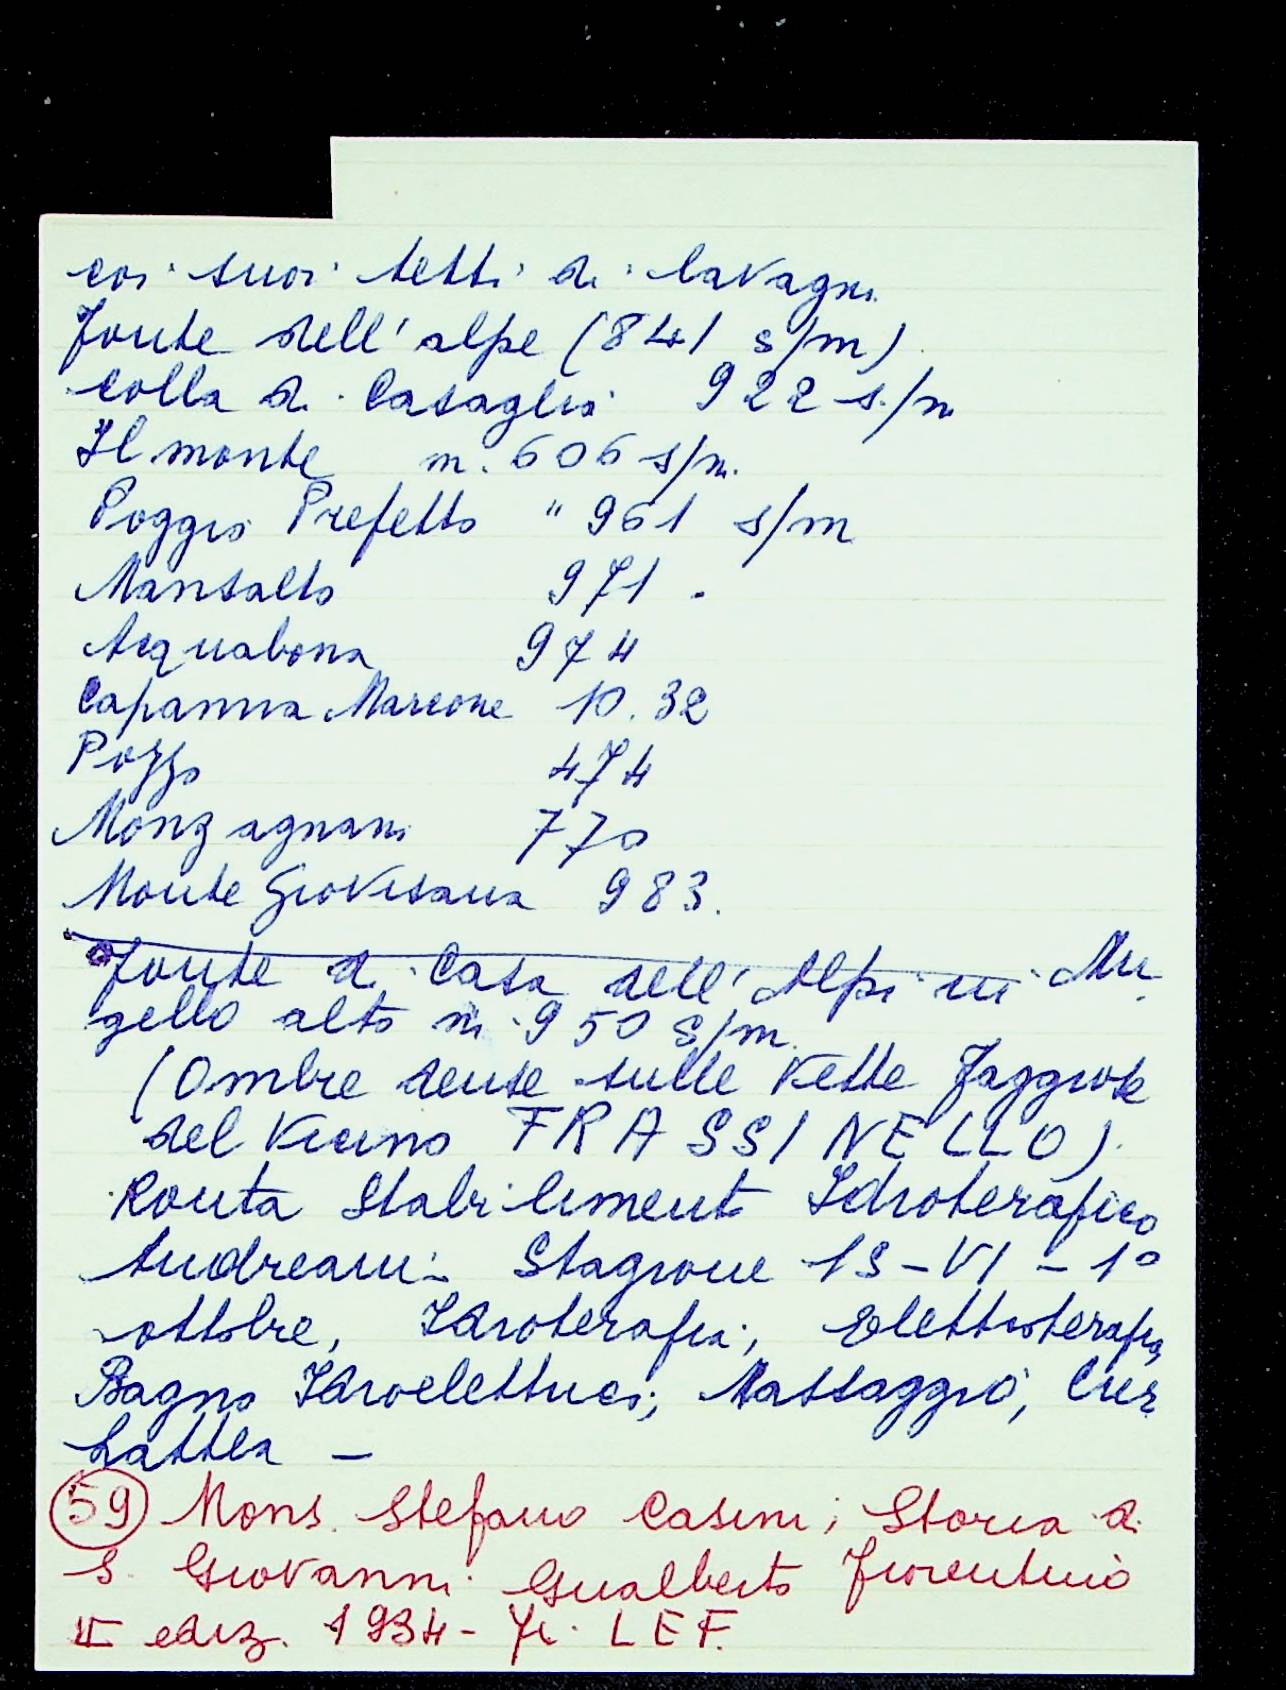 coi suoi tetti di lavagni
Fonte dell'alpe (841 s/m)
Colla di Casaglia 922 s/m
Il monte m. 606 s/m.
Poggio Prefetto " 961 s/m
Mansalto 971 "
Acquabona 974
Capanna Marcone 10.32
Pozzo 474
Monzagnani 770
Monte Giovisana 983.
Fonte di Casa dell'Alpi in Mu
gello alto m. 950 s/m.
(Ombre dense sulle vette Faggiote
del vicino FRASSINELLO).
Ronta Stabilimento Idroterapico
Andreani - Stagione 15-VI - 1°
ottobre, Idroterapia, Elettroterapia,
Bagno Idroelettrici, Massaggio, Cura
Lattea -
59 Mons. Stefano Casini; Storia di
S. Giovanni Gualberto Fiorentino
II ediz. 1934 - Fi. LEF.